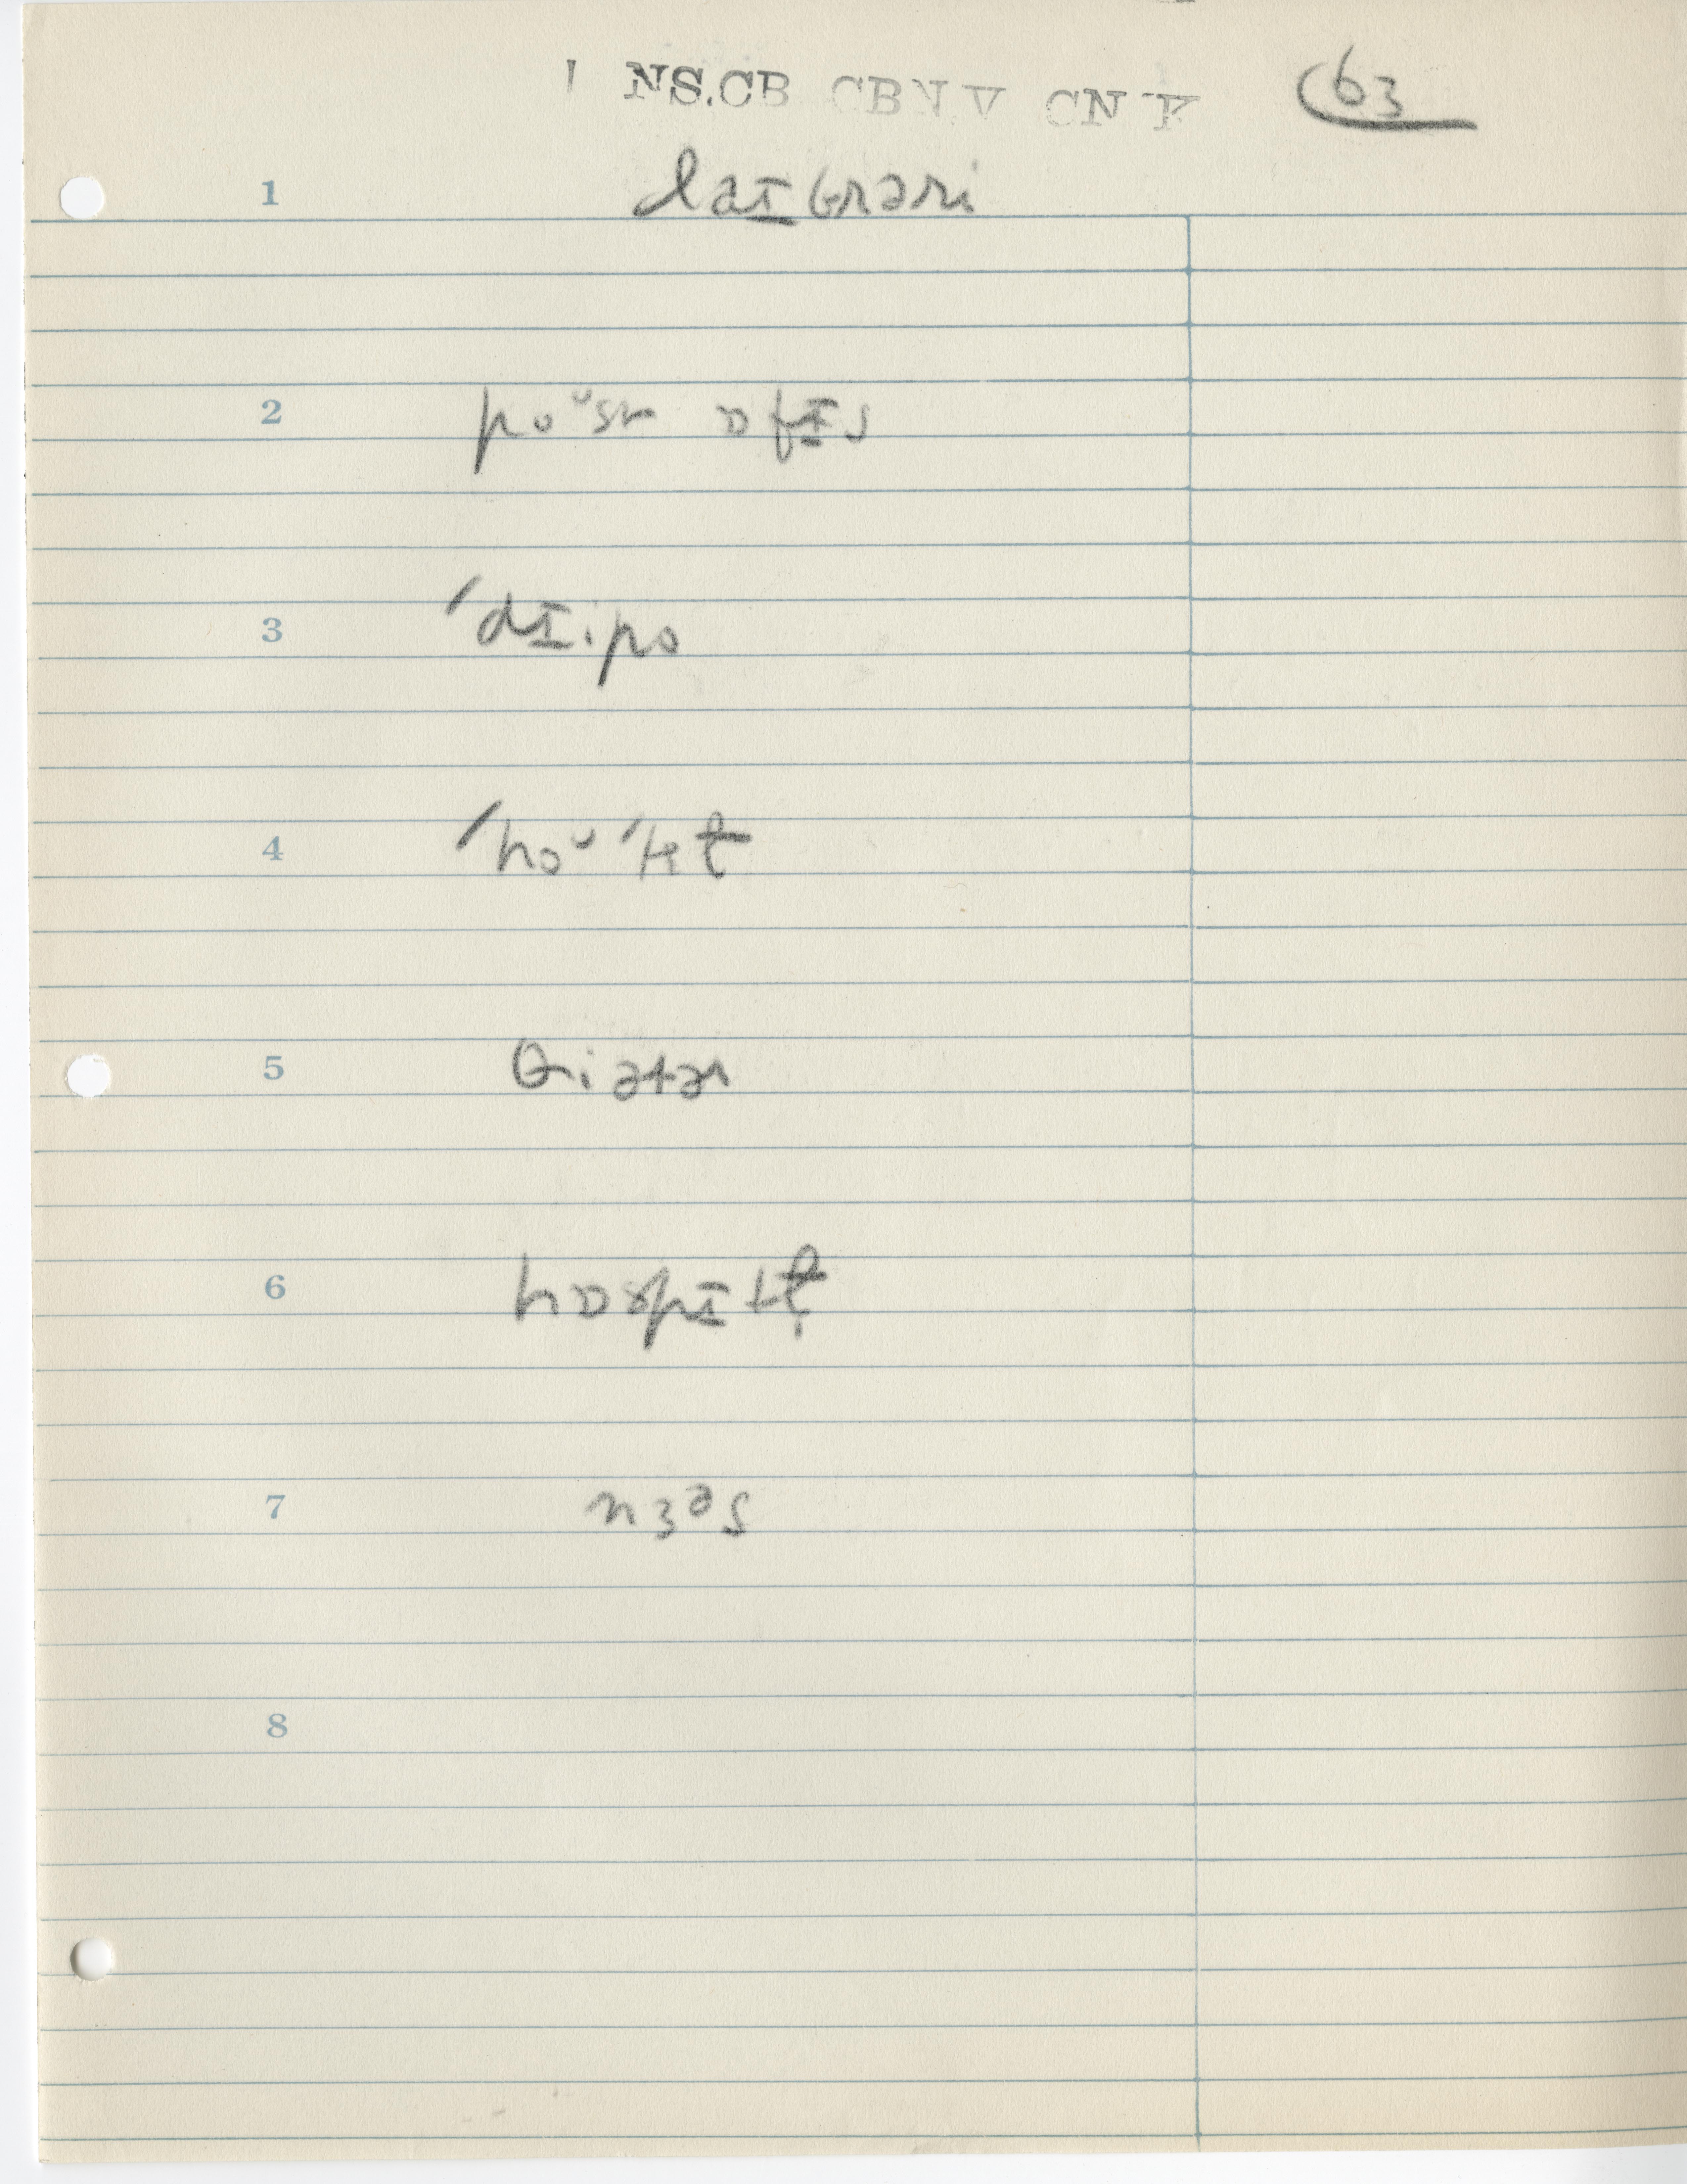 NS.CB CBN.V CN K 63
1 laɪbrəri
2 poᵕst ɒfɪs
3 ˊdɪipo
4 ˊhoᵕˊtɛɫ
5 θiətər
6 hɒspɪtɫ̩
7 nɜᵊs
8